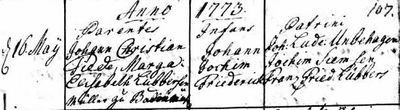 Anno 1773. 107.
Parentes Infans Patrini
16 Maÿ Johann Christian Johann Joh. Lud. Unbehagen
Marga. Jochim Jochim Siemsen
Elisabeth Lübbersen Friederich Franz Fried. Lübbers
Müller zu